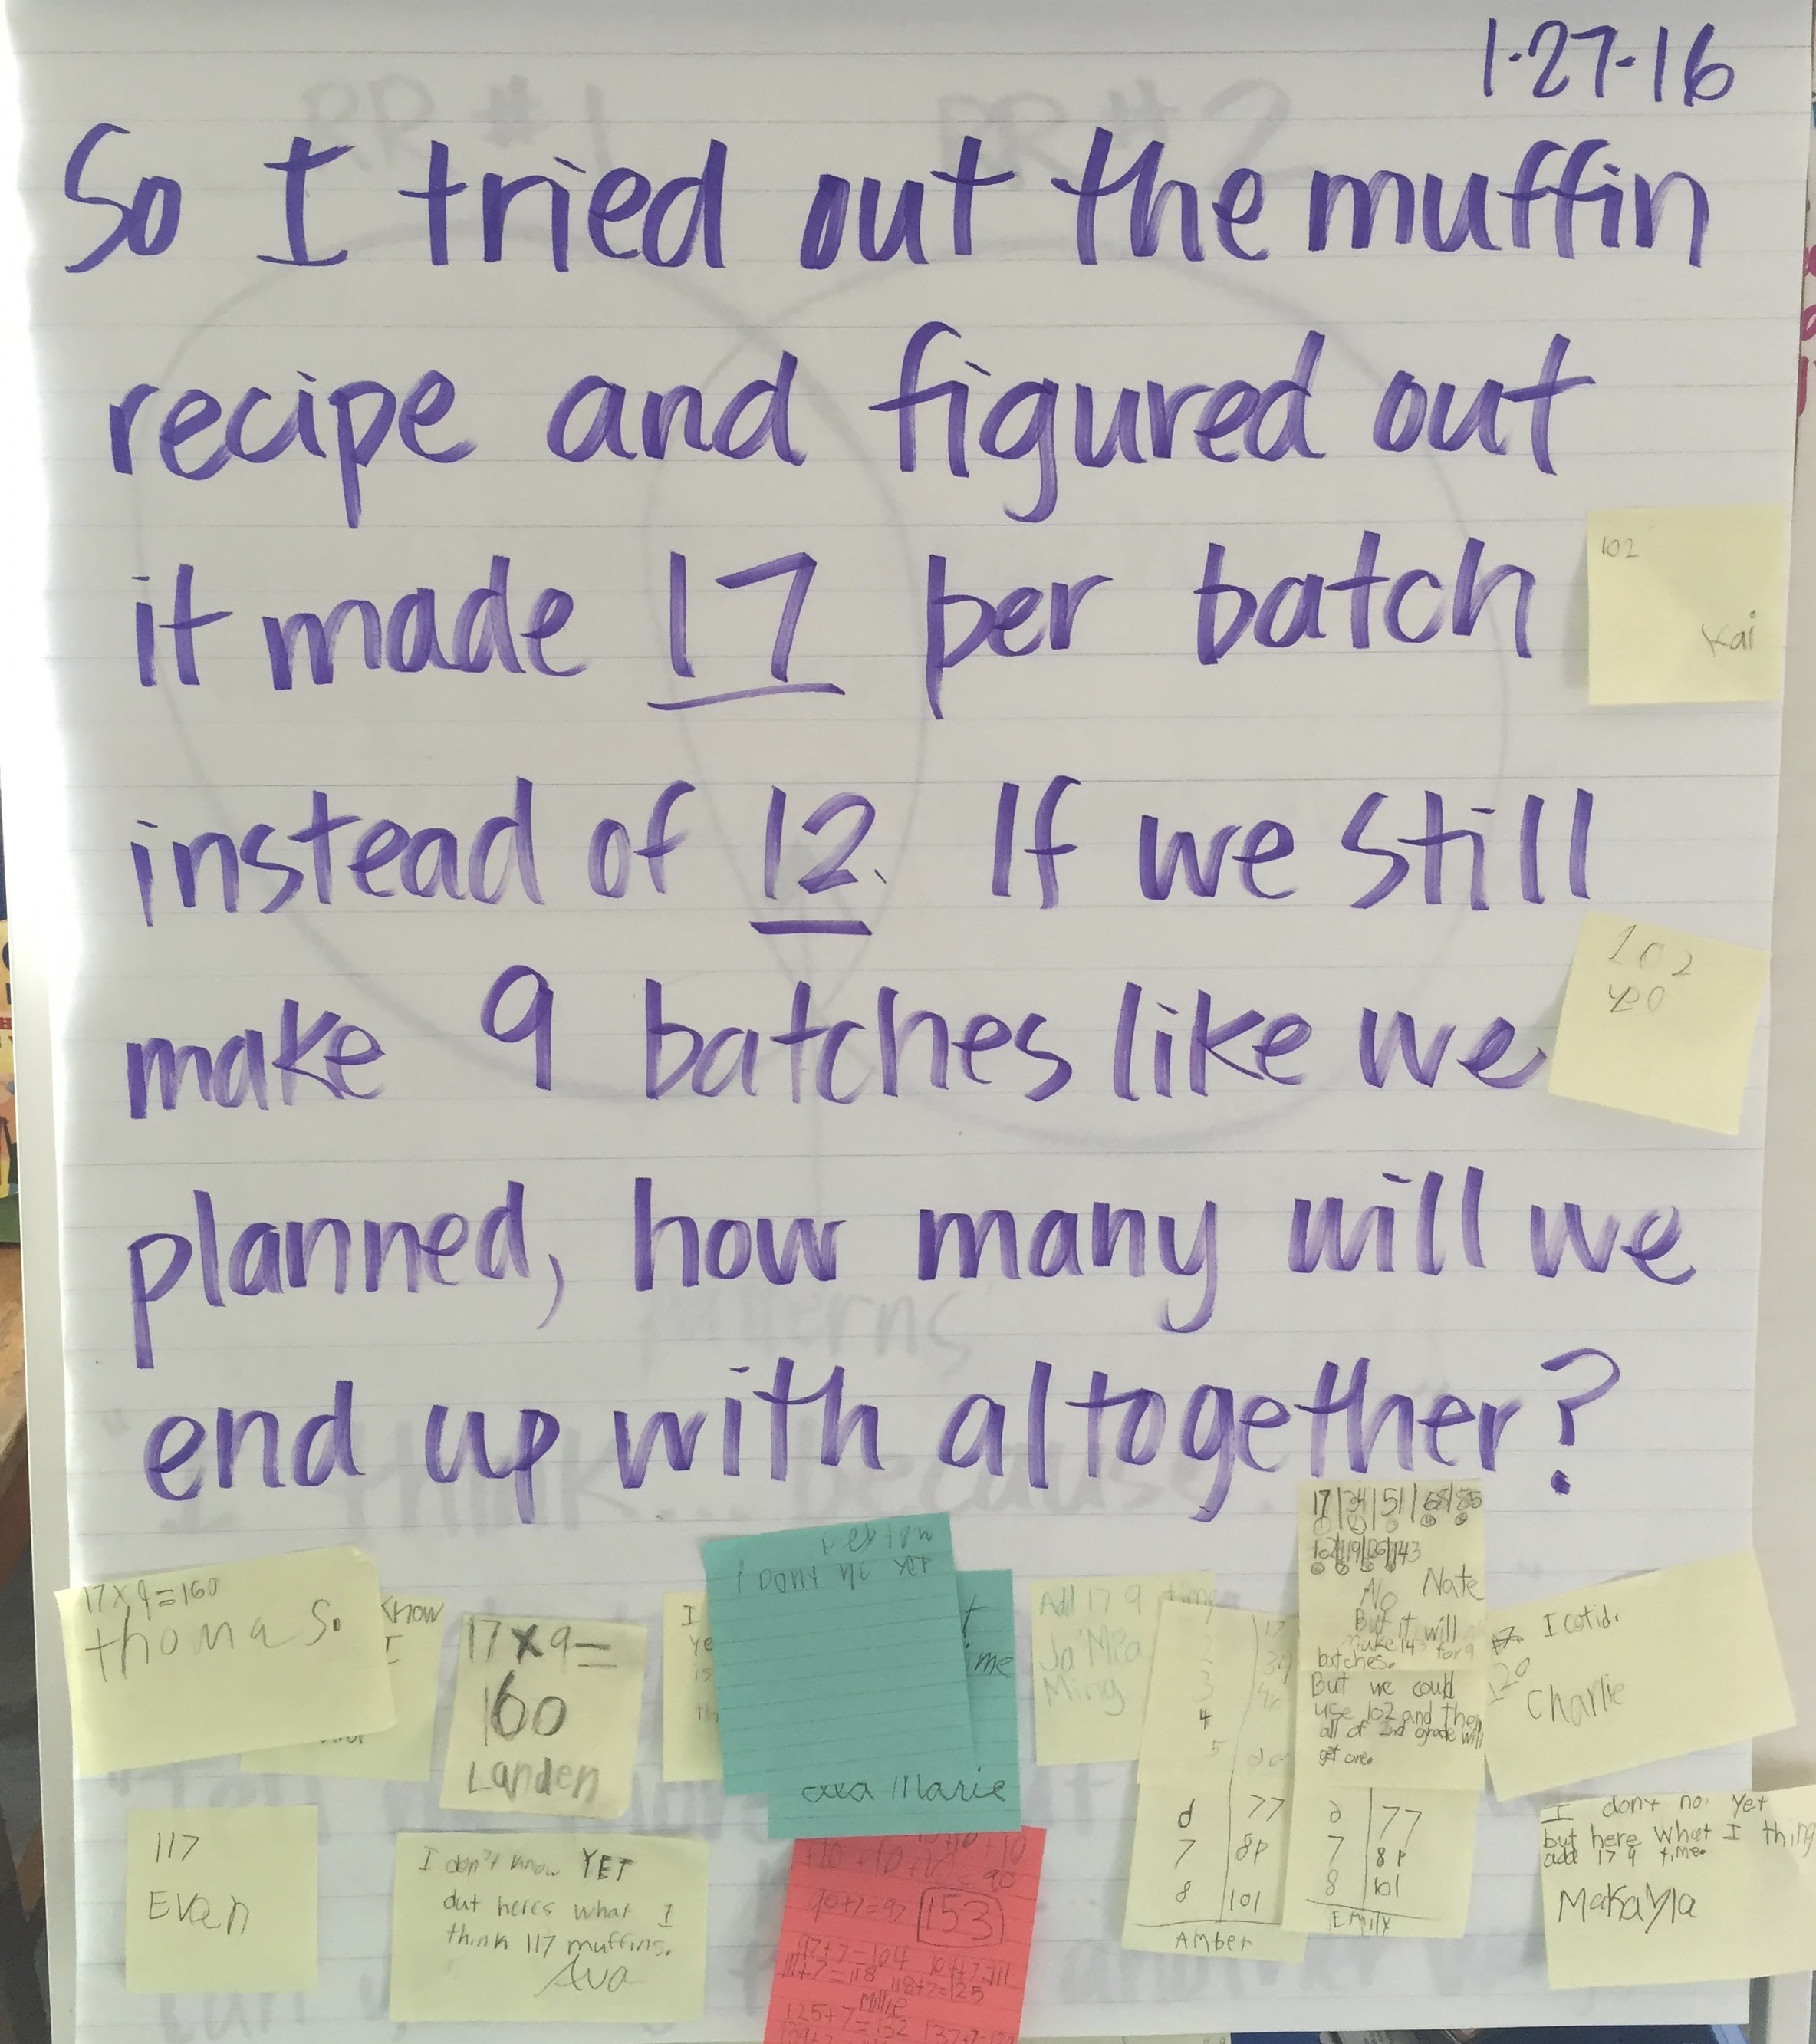 1-27-16
So I tried out the muffin
recipe and figured out
it made 17 per batch
instead of 12. If we still
make 9 batches like we
planned, how many will we
end up with altogether?
102
Kai
102
17x9=160
thomas.
Know
I
17x9=
160
Landen
I
ye
is
th
I Dont no yet
t
ime
ava Marie
Add 17 9 time
Ja'Mya
Ming
17
3
4
5
6 77
7 8p
8 101
Amber
17|34|51|68|85
Nate
No
But it will
make 143 for 9
batches.
But we could
use 102 and then
all of 2nd grade will
get one.
7 81
8 101
Emily
I cotid.
120
Charlie
117
Evan
I don't know YET
but heres what I
think 117 muffins.
Ava
+10 +10
90
90+7=97 153
97+7=104 104+7=111
111+7=118 118+7=125
Millie
125+7=132
I don't no yet
but here what I thing
add 17 9 time.
Makayla